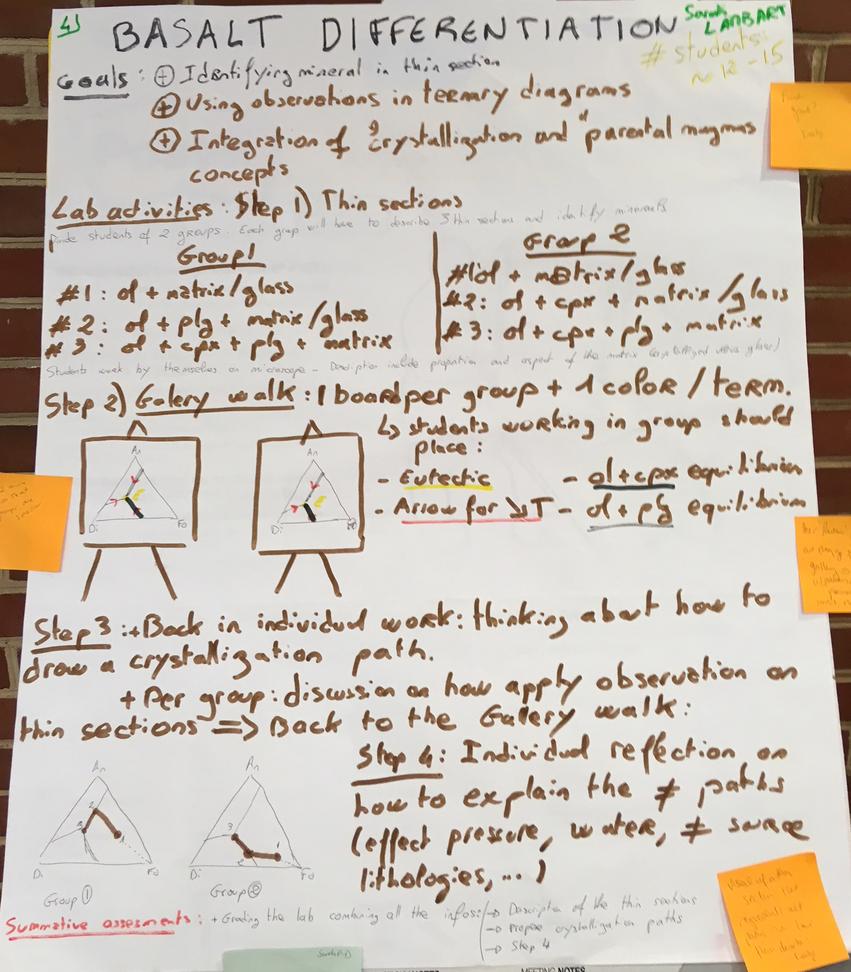 4)
BASALT DIFFERENTIATION
Sarah
LAMBART
# students:
~ 12-15
Goals: ⊕ Identifying mineral in thin section
⊕ Using observations in ternary diagrams
⊕ Integration of "crystallization and "parental magmas
concepts
Lab activities: Step 1) Thin sections
students of 2 groups. Each group will have to describe 3 thin sections and identify minerals
Group 1
#1: ol + matrix/glass
#2: ol + plg + matrix/glass
#3: ol + cpx + plg + matrix
Group 2
#1: ol + matrix/glass
#2: ol + cpx + matrix/glass
#3: ol + cpx + plg + matrix
Students work by themselves on microscope - Description include proportion and aspect of the matrix (crystallized versus glass)
Step 2) Galery walk: 1 board per group + 1 color/term.
↳ students working in group should
place:
- Eutectic
- ol+cpx equilibrium
- Arrow for ↘T
- ol + plg equilibrium
An
Di
Fo
An
Di
Fo
Step 3: + Back in individual work: thinking about how to
draw a crystallization path.
+ Per group: discussion on how apply observation on
thin sections => Back to the Galery walk:
An
2
3
1
Di
Fo
Group ①
An
3
2
1
Di
Fo
Group ②
Step 4: Individual reflection on
how to explain the ≠ paths
(effect pressure, water, ≠ source
lithologies, ...)
Summative assesments: + Grading the lab combining all the infos:
→ Description of the thin sections
→ Propose crystallization paths
→ Step 4
MEETING NOTES